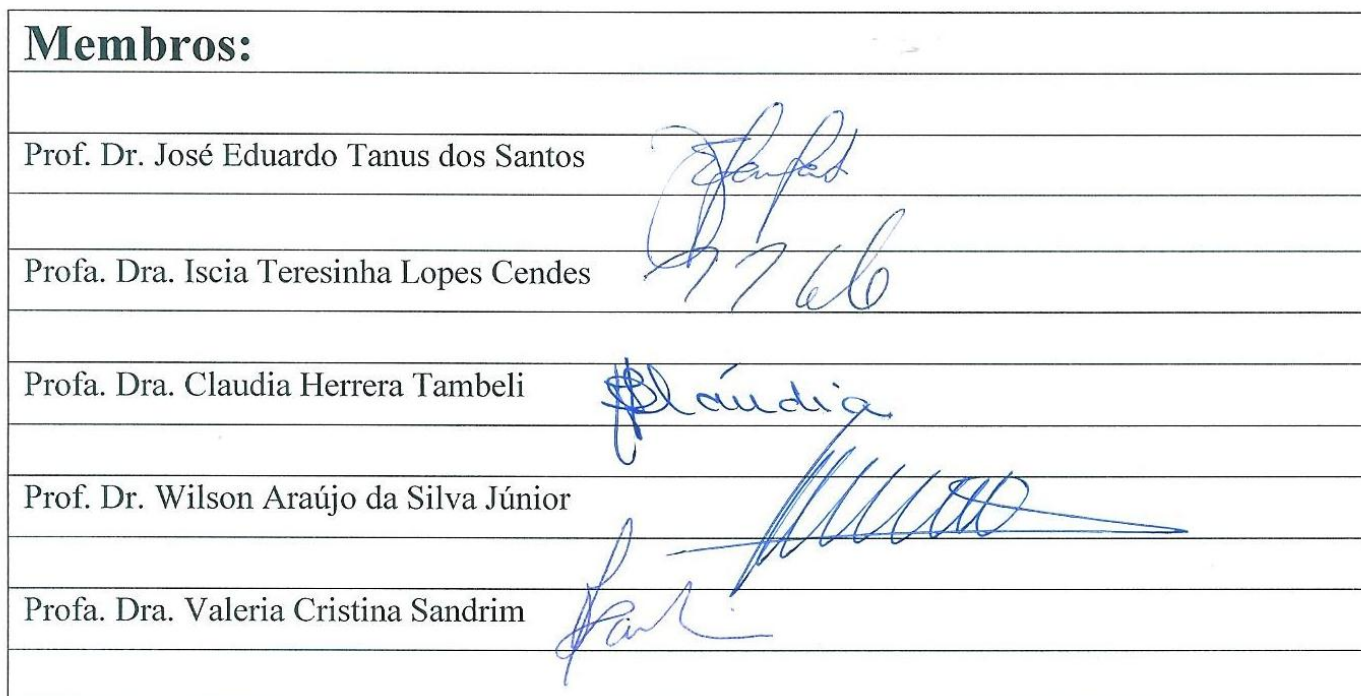 Membros:
Prof. Dr. José Eduardo Tanus dos Santos
Profa. Dra. Iscia Teresinha Lopes Cendes
Profa. Dra. Claudia Herrera Tambeli
Cláudia
Prof. Dr. Wilson Araújo da Silva Júnior
Profa. Dra. Valeria Cristina Sandrim